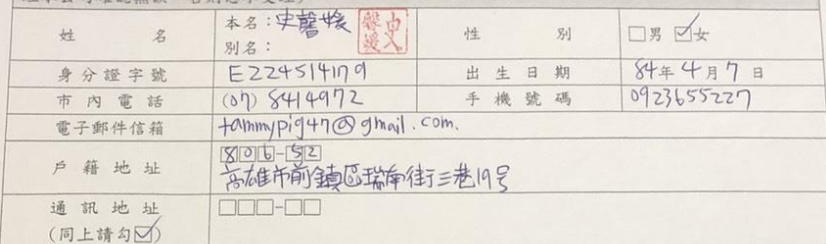 姓名 本名：史謦媛 性別 □男 ☑女
別名：
身分證字號 E224514179 出生日期 84年4月7日
市內電話 (07) 8414972 手機號碼 0923655227
電子郵件信箱 tammypig47@gmail.com.
戶籍地址 806-52
高雄市前鎮區瑞南街三巷19号
通訊地址 □□□-□□
(同上請勾☑)